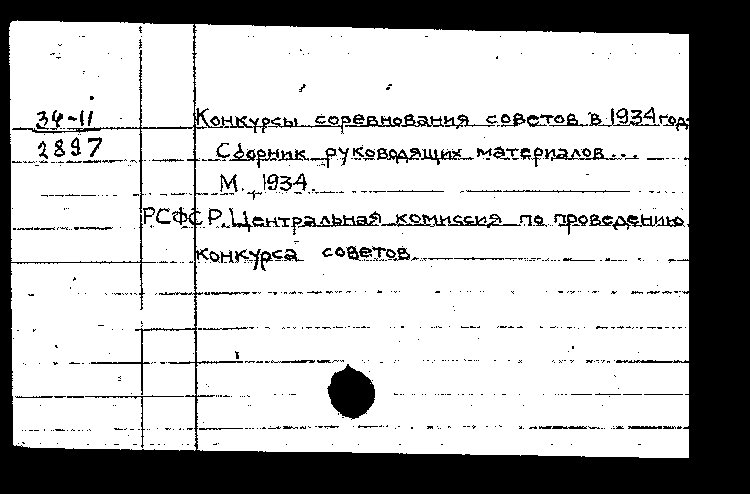 34-11
2897
Конкурсы соревнования советов в 1934 год
Сборник руководящих материалов...
М., 1934.
РСФСР. Центральная комиссия по проведению
конкурса советов